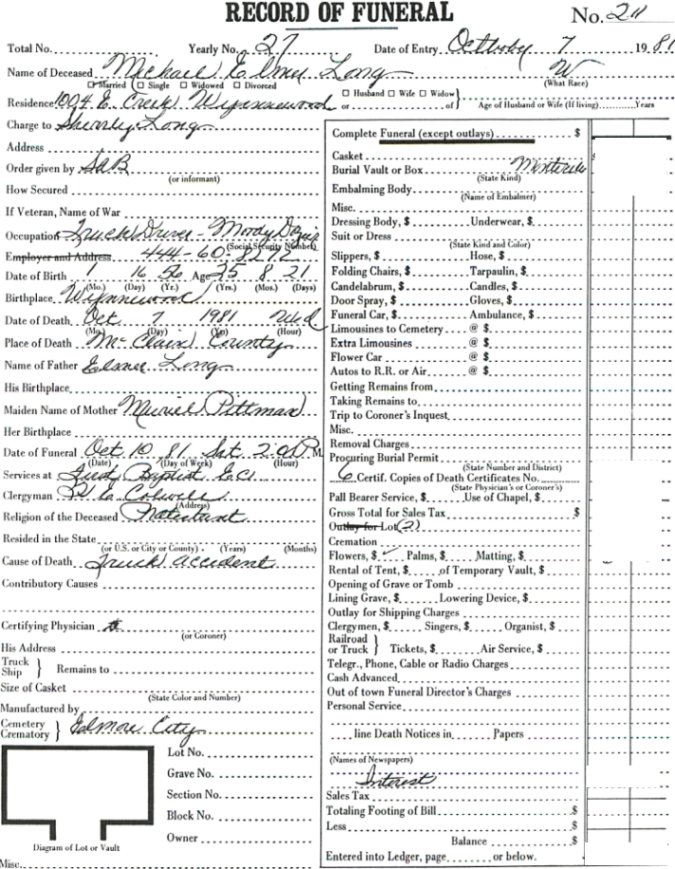 RECORD OF FUNERAL No. 211
Total No. Yearly No. 27 Date of Entry October 7 1981
Name of Deceased Michael Elmer Long W
☐ Married ☐ Single ☐ Widowed ☐ Divorced (What Race)
Residence 1004 E. Creek Wynnewood or ☐ Husband ☐ Wife ☐ Widow of Age of Husband or Wife (If living) Years
Charge to Shirley Long
Address
Order given by S&B
(or informant)
How Secured
If Veteran, Name of War
Occupation Truck Driver - Moody
(Social Security Number)
Employer and Address 444-60-8272
Date of Birth 1 16 56 Age 25 8 21
(Mo.) (Day) (Yr.) (Yrs.) (Mos.) (Days)
Birthplace Wynnewood
Date of Death Oct 7 1981 Wed
(Mo.) (Day) (Yr) (Hour)
Place of Death McClain County
Name of Father Elmer Long
His Birthplace
Maiden Name of Mother Muriel Pittman
Her Birthplace
Date of Funeral Oct 10 81 Sat. 2:00 P M.
(Date) (Day of Week) (Hour)
Services at First Baptist E.C.
Clergyman
(Address)
Religion of the Deceased Protestant
Resided in the State
(or U.S. or City or County) (Years) (Months)
Cause of Death Truck accident
Contributory Causes
Certifying Physician
(or Coroner)
His Address
Truck Ship } Remains to
Size of Casket
(State Color and Number)
Manufactured by
Cemetery Crematory } Elmore City
Lot No.
Grave No.
Section No.
Block No.
Owner
Diagram of Lot or Vault
Misc.
Complete Funeral (except outlays) $
Casket
Burial Vault or Box
(State Kind)
Embalming Body
(Name of Embalmer)
Misc.
Dressing Body, $ Underwear, $
Suit or Dress
(State Kind and Color)
Slippers, $ Hose, $
Folding Chairs, $ Tarpaulin, $
Candelabrum, $ Candles, $
Door Spray, $ Gloves, $
Funeral Car, $ Ambulance, $
Limousines to Cemetery @ $
Extra Limousines @ $
Flower Car @ $
Autos to R.R. or Air @ $
Getting Remains from
Taking Remains to
Trip to Coroner's Inquest
Misc.
Removal Charges
Procuring Burial Permit
(State Number and District)
6 Certif. Copies of Death Certificates No.
(State Physician's or Coroner's)
Pall Bearer Service, $ Use of Chapel, $
Gross Total for Sales Tax $
Outlay for Lot (2)
Cremation
Flowers, $ ✓ Palms, $ Matting, $
Rental of Tent, $ of Temporary Vault, $
Opening of Grave or Tomb
Lining Grave, $ Lowering Device, $
Outlay for Shipping Charges
Clergymen, $ Singers, $ Organist, $
Railroad or Truck } Tickets, $ Air Service, $
Telegr., Phone, Cable or Radio Charges
Cash Advanced
Out of town Funeral Director's Charges
Personal Service
line Death Notices in Papers
(Names of Newspapers)
Interest
Sales Tax
Totaling Footing of Bill $
Less $
Balance $
Entered into Ledger, page or below.